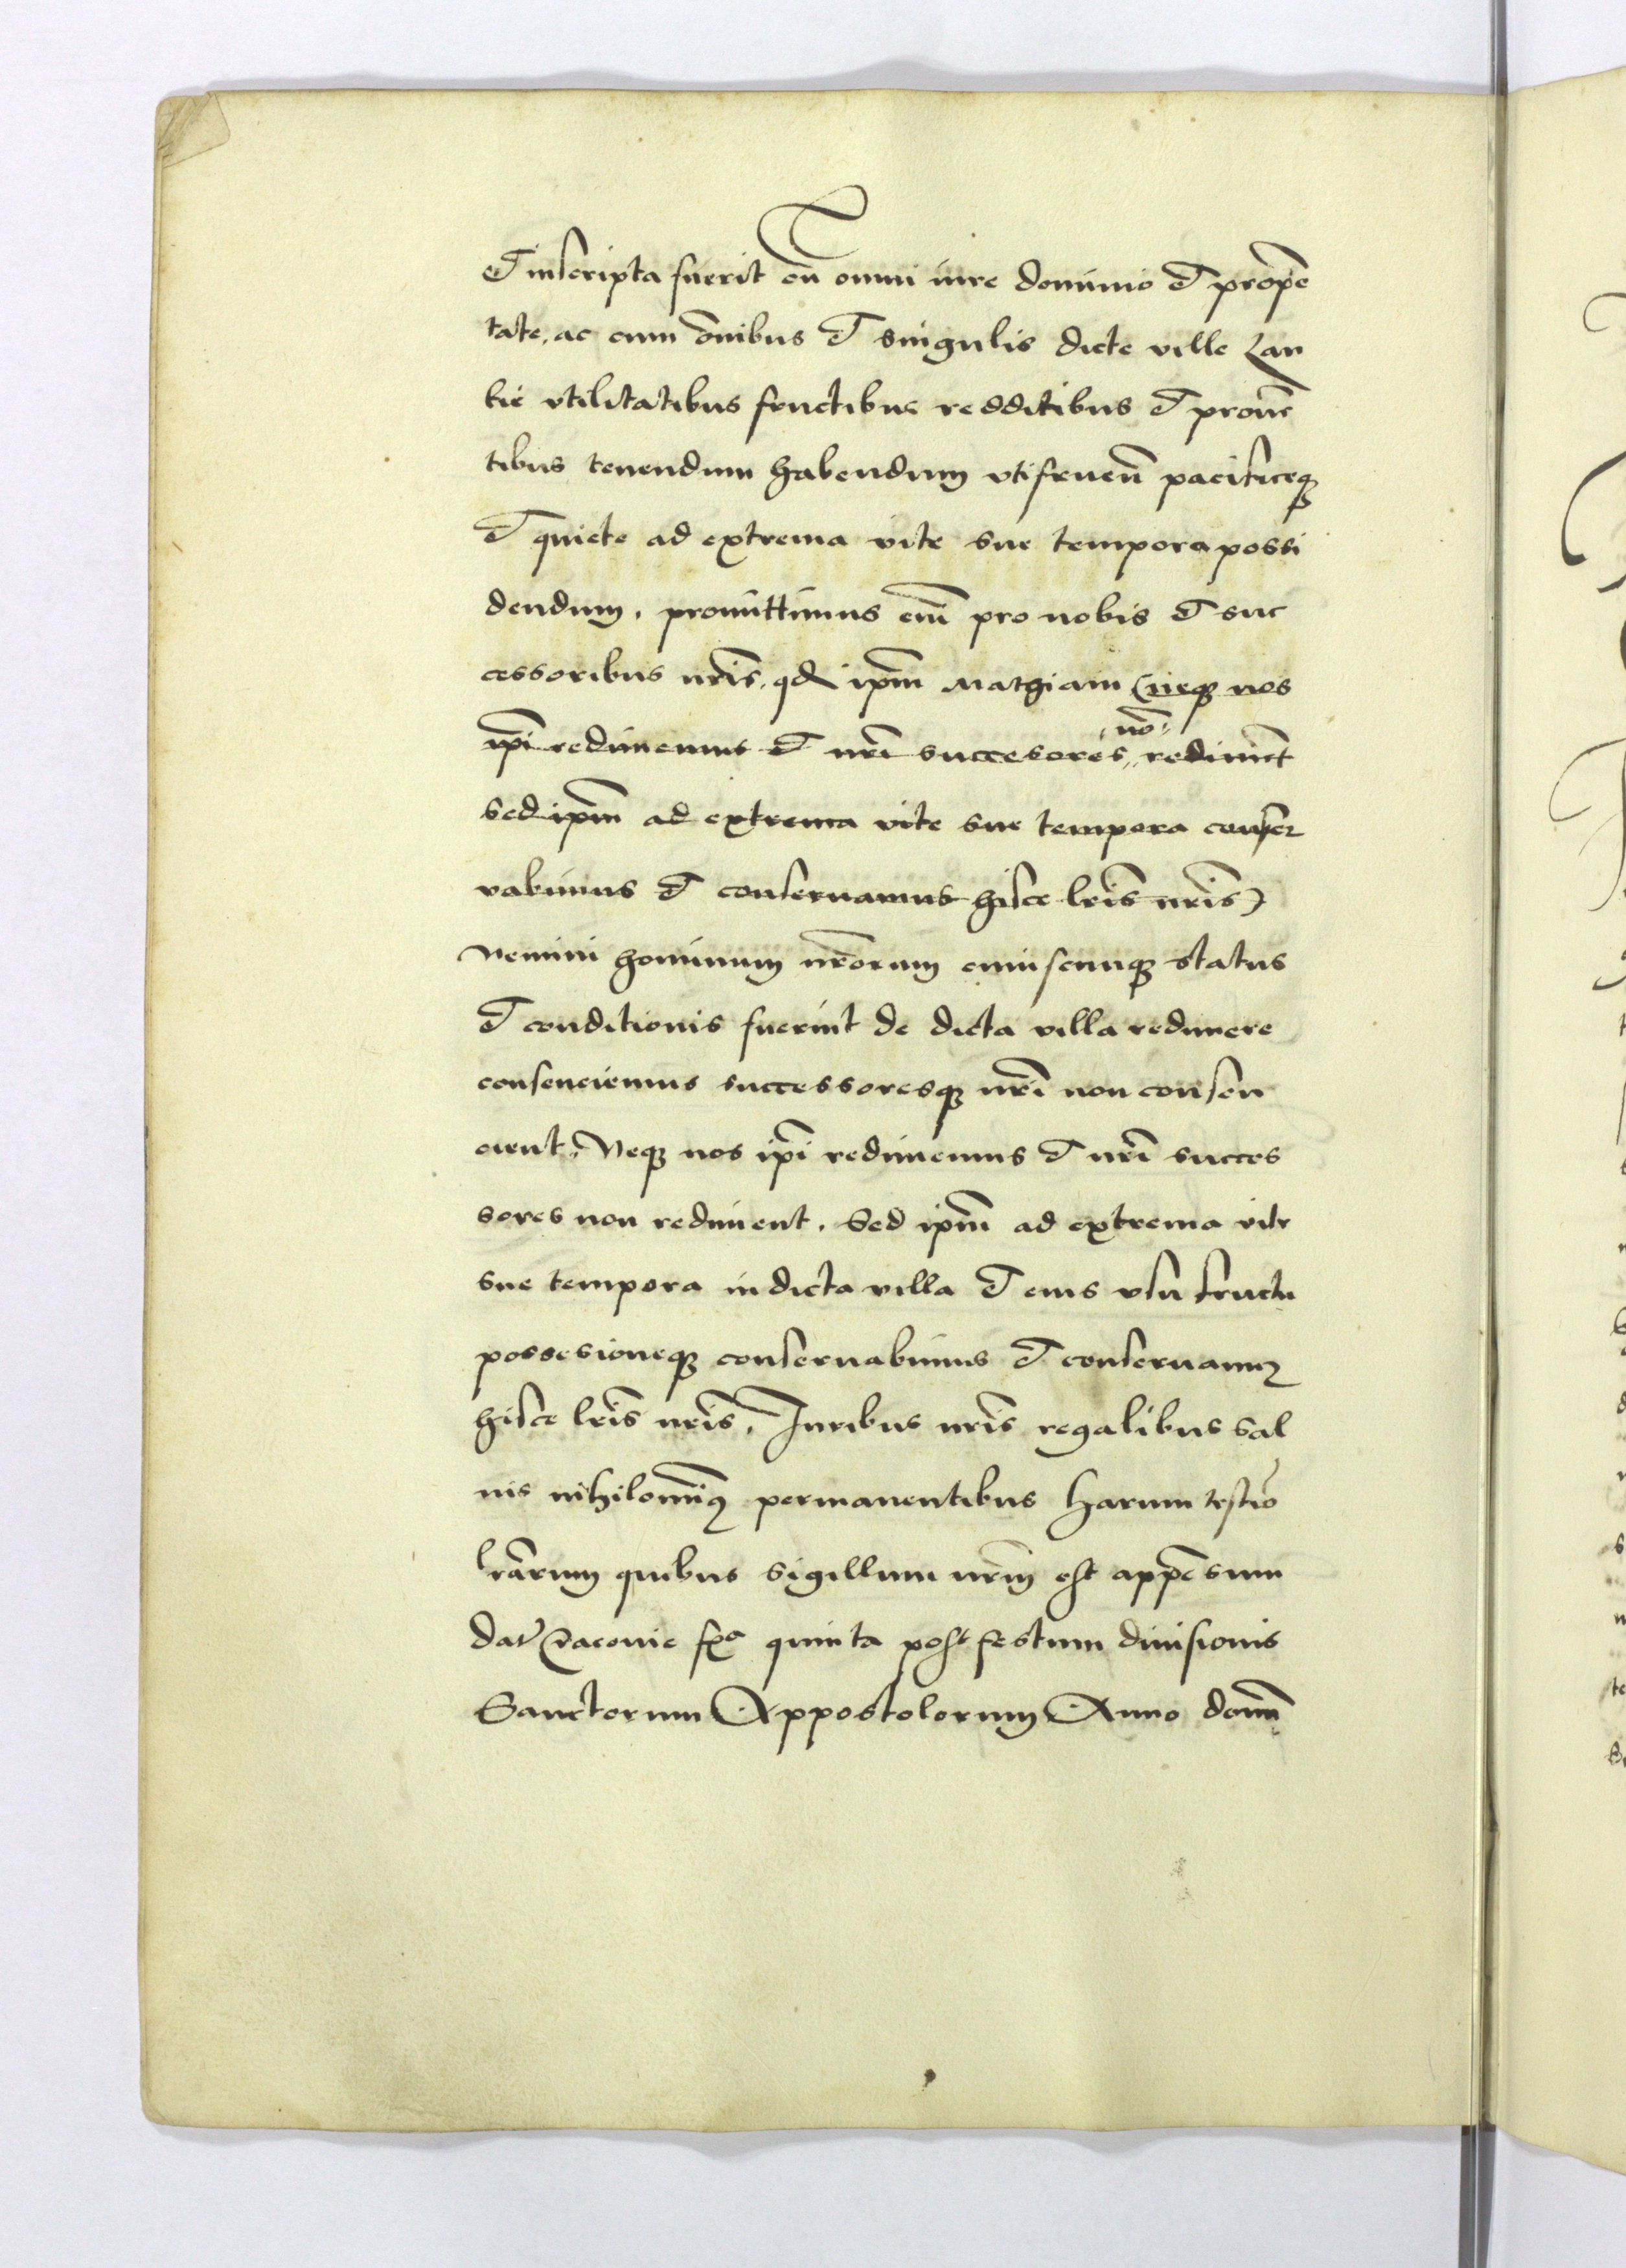 et inscripta fuerit cū omni iure dominio et prop̄e
tate, ac cum om̄ibus et singulis dicte ville Lan
kie vtilitatibus fructibus redditibus et proue̅
tibus tenendum habendum vtifruen̅ pacificeqꝫ
et quiete ad extrema vite sue tempora possi
dendum. promittimus em̄ pro nobis et suc
cessoribus nr̄is, qd ip̄m Mathiam (neqꝫ nos
ip̄i redimemus et nr̄i successores, nō redime̅t
sed ip̄m ad extrema vite sue tempora conser
vabimus et conseruamus hisce lr̄is nr̄is)
Nemini hominum nr̄orum cuiuscunqꝫ status
et conditionis fuerint de dicta villa redimere
consenciemus successoresqꝫ nr̄i non consen
cient, Neqꝫ nos ip̄i redimemus et nr̄i succes
sores non rediment. Sed ip̄m ad extrema vite
sue tempora in dicta villa et eius vsu fructu
possesioneqꝫ conseruabimus et conseruamꝰ
hisce lr̄is nr̄is. Iuribus nr̄is regalibus sal
uis nihilomiꝰ permanentibus harum testio
lr̄arum quibus sigillum nr̄m est appe̅sum
dat̄ Cracouie fꝫa quinta post festum diuisionis
Sanctorum Appostolorum Anno domī